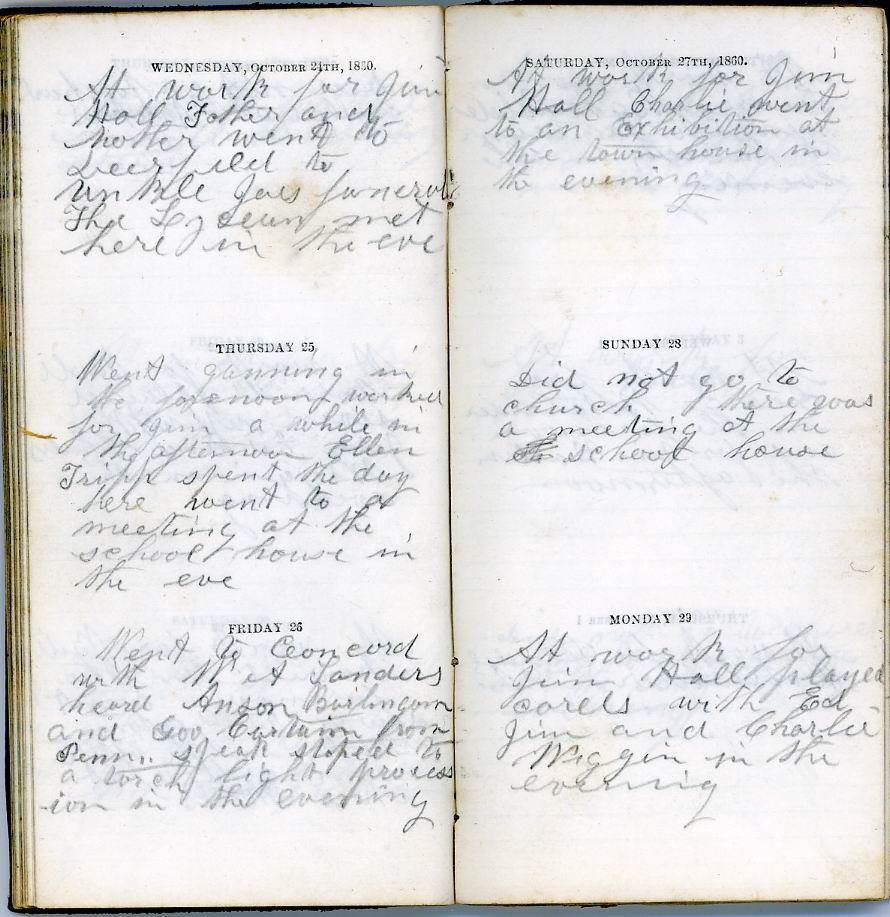 WEDNESDAY, OCTOBER 24TH, 1860.
At work for Jim
Hall Father and
Mother went to
Deerfield to
Unkle Joes funeral
The Lyceum met
here in the eve
THURSDAY 25
Went gunning in
the forenoon worked
for Jim a while in
the afternoon Ellen
Tripp spent the day
here went to a
meeting at the
school house in
the eve
FRIDAY 26
Went to Concord
with Sanders
heard Anson Burlingam
and Gov Curtain from
Penn., speak stoped to
a torch light process
ion in the evening
SATURDAY, OCTOBER 27TH, 1860.
At work for Jim
Hall Charlie went
to an Exhibition at
the town house in
the evening
SUNDAY 28
Did not go to
church there was
a meeting at the
school house
MONDAY 29
At work for
Jim Hall played
cards with Ed
Jim and Charlie
Wiggin in the
evening